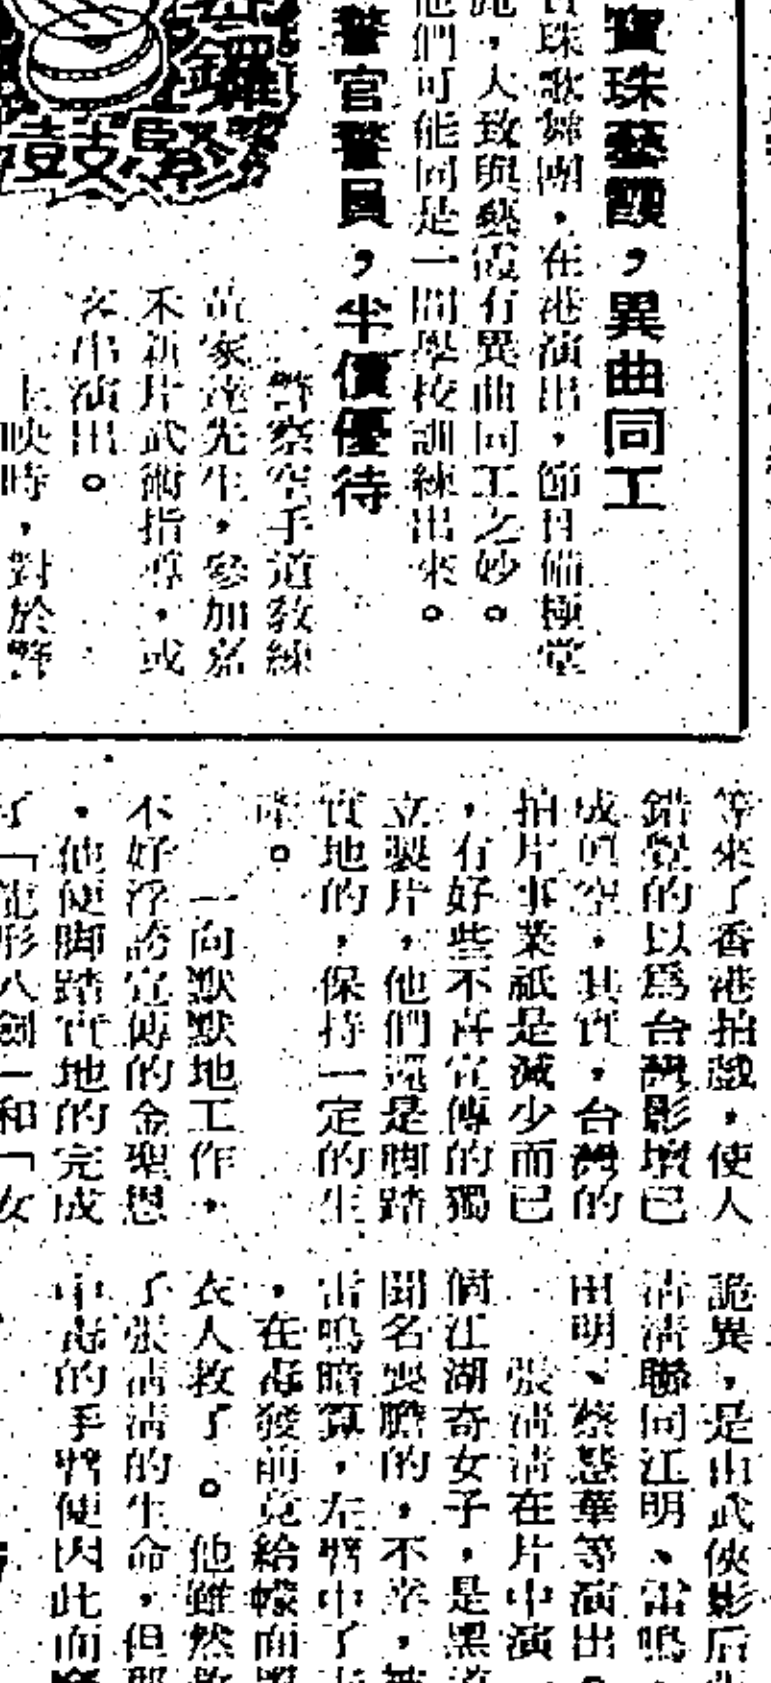 寶珠藝霞，異曲同工
珠歌舞團，在港演出，節目備極堂
，大致與藝霞有異曲同工之妙。
他們可能同是一間學校訓練出來。
警官警員，半價優待
警察空手道教練
黃家達先生，參加嘉
禾新片武術指導，或
客串演出。
上映時，對於警
鑼
鼓緊
等來了香港拍戲，使人
錯覺的以爲台灣影壇已
成眞空，其實，台灣的
拍片事業祇是減少而已
，有好些不喜宣傳的獨
立製片，他們還是脚踏
實地的，保持一定的生
產。
一向默默地工作，
不好浮誇宣傳的金聖恩
，他便脚踏實地的完成
了「龍形八劍」和「女
詭異，是由武俠影后
清清聯同江明、雷鳴、
田明、蔡慧華等演出。
張清清在片中演
個江湖奇女子，是黑道
聞名喪膽的，不幸，被
雷鳴暗算，左臂中了
，在毒發前竟給幪面
衣人救了。他雖然救
了張清清的生命，但那
中毒的手臂便因此而